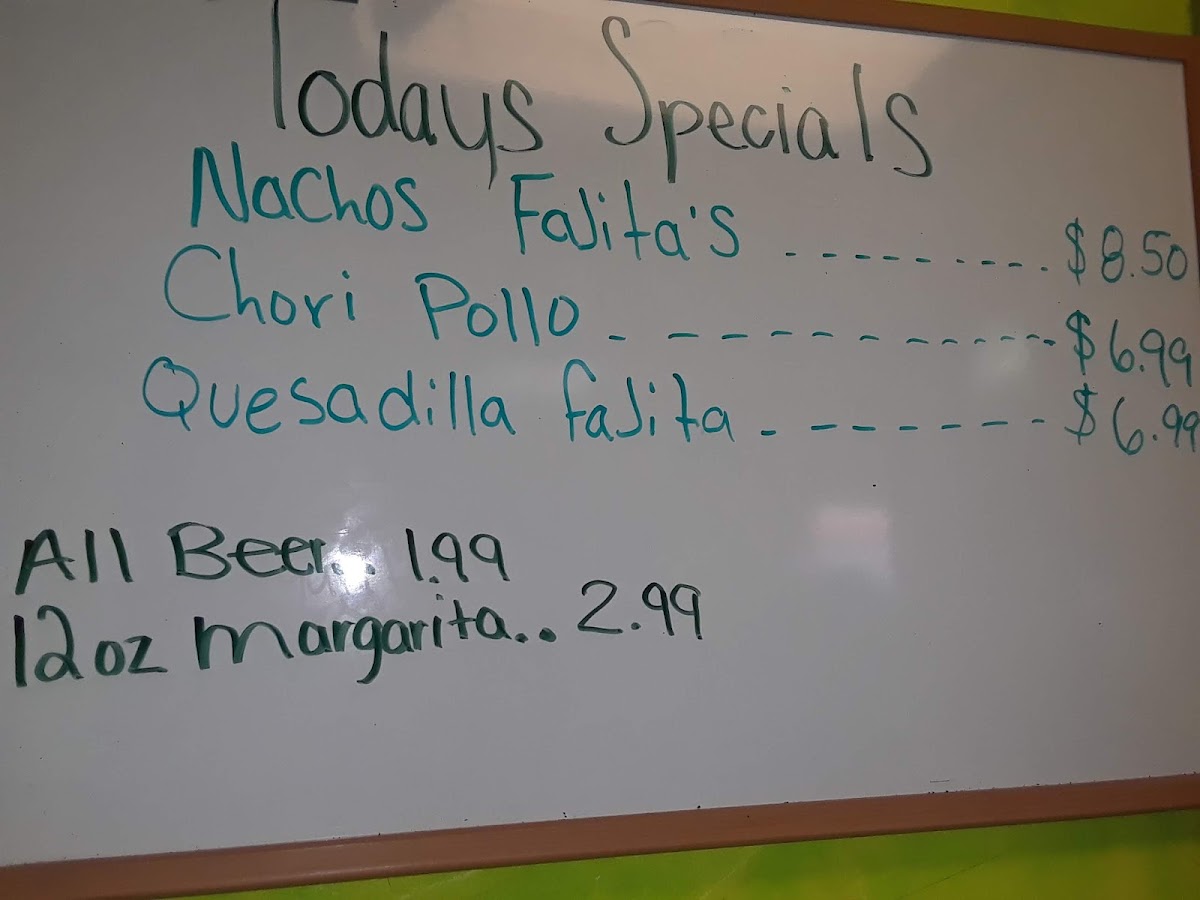 Todays Specials
Nachos Fajita's ---------- $8.50
Chori Pollo ------------- $6.99
Quesadilla fajita -------- $6.99
All Beer... 1.99
12oz margarita.. 2.99